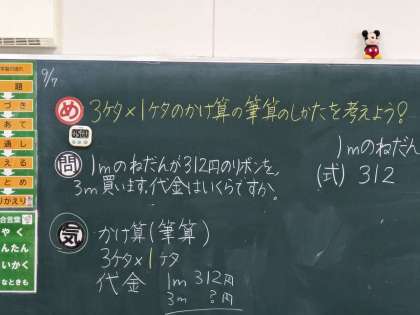 9/7
め 3ケタ×1ケタのかけ算の筆算のしかたを考えよう!
05:00
問 1mのねだんが312円のリボンを
3m買います。代金はいくらですか。
気 かけ算(筆算)
3ケタ×1ケタ
代金 1m 312円
3m ?円
1mのねだん
(式) 312
題
づき
あて
通し
える
とめ
りかえり
合言葉
やく
んたん
いかく
なときも